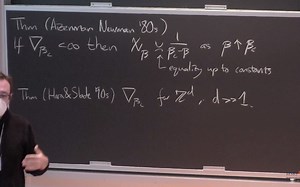 Thm (Aizenman Newman '80s)
If ∇_{β_c} < ∞ then χ_β ≍ 1/(β_c-β) as β↑β_c
equality up to constants
Thm (Hara & Slade 90s) ∇_{β_c} for ℤ^d, d>>1.